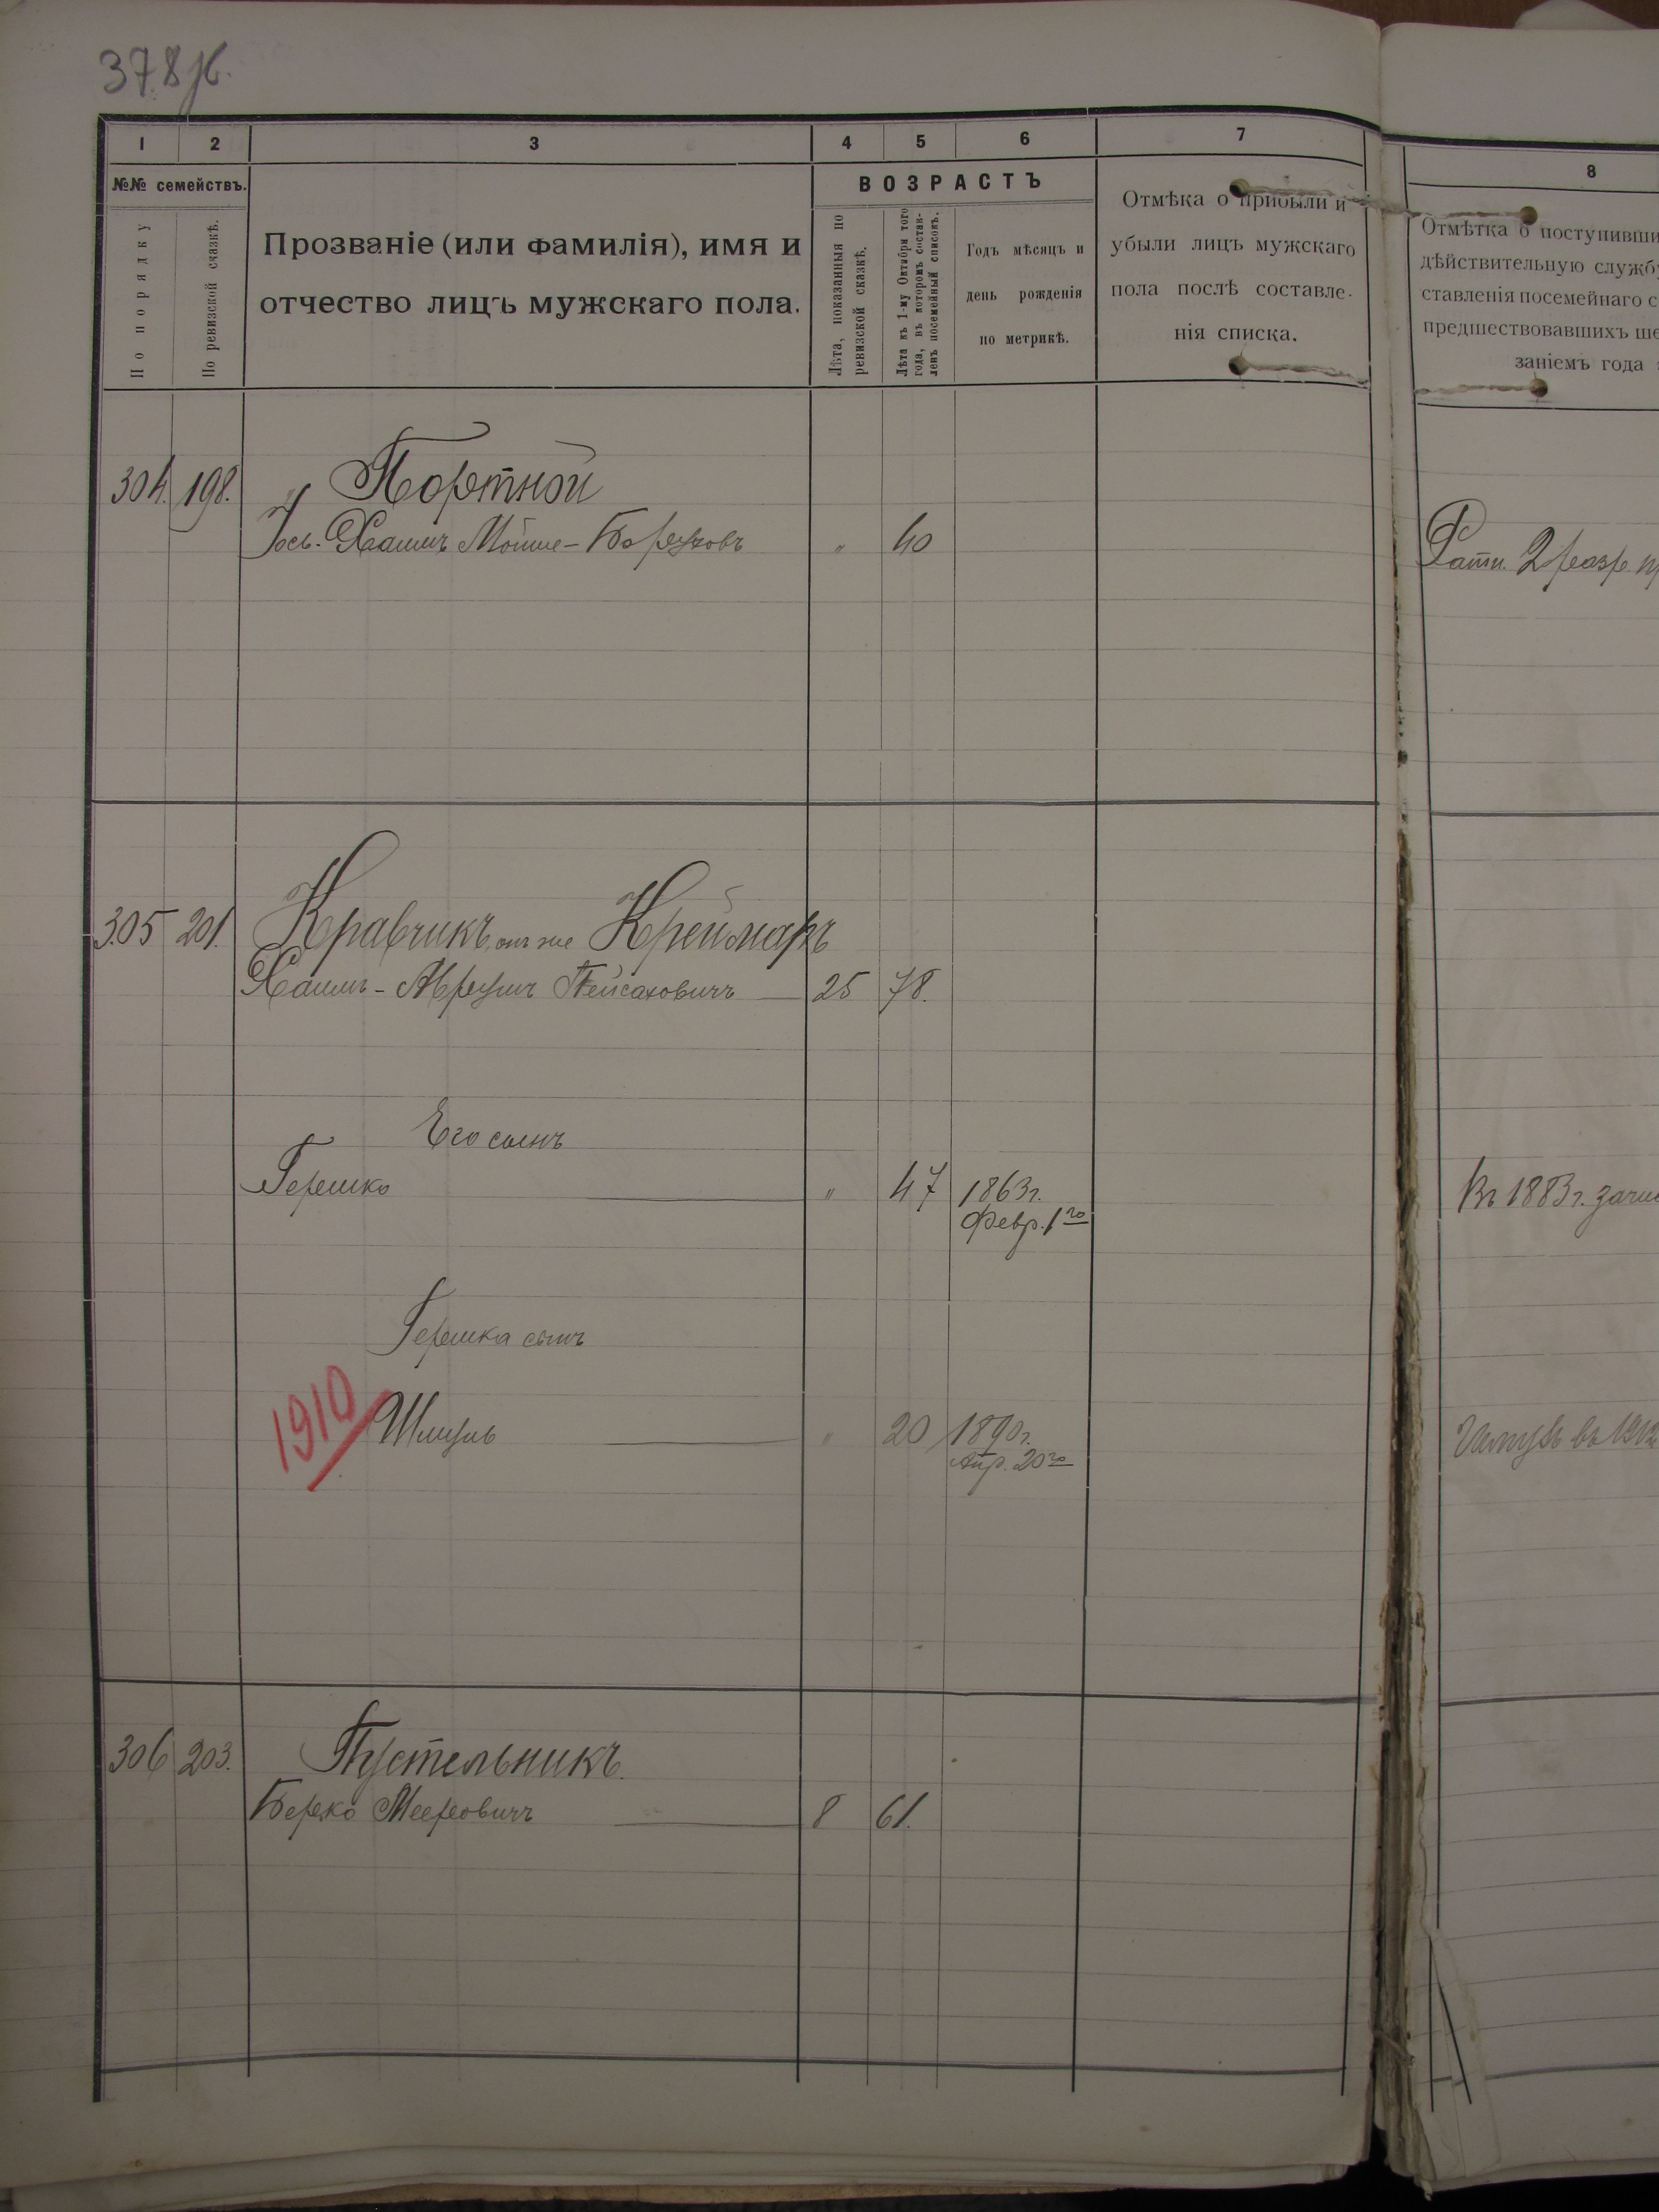 378 об.
1 2 3 4 5 6 7 8
№№ семействъ.
По порядку
По ревизской сказкѣ.
Прозваніе (или фамилія), имя и
отчество лицъ мужскаго пола.
ВОЗРАСТЪ
Лѣта, показанныя по
ревизской сказкѣ.
Лѣта къ 1-му Октября того
года, въ которомъ состав-
ленъ посемейный списокъ.
Годъ мѣсяцъ и
день рожденія
по метрикѣ.
Отмѣка о прибыли и
убыли лицъ мужскаго
пола послѣ составле-
нія списка.
Отмѣтка о поступивши
дѣйствительную служб
ставленія посемейнаго с
предшествовавшихъ ше
заніемъ года
304. 198. Портной
Іось-Хаимъ Мойше-Боруховъ " 40
Ратн. 2 разр.
305 201. Кравчикъ, онъ же Креймаръ
Хаимъ-Аврумъ Пейсаховичъ 25 78.
Его сынъ
Гершко " 47 1863 г.
Февр. 1го
Въ 1883 г. зачис
Гершка сынъ
1910 Шмуль " 20 1890 г.
Апр. 20го
306 203. Пустельникъ.
Берко Мееровичъ 8 61.